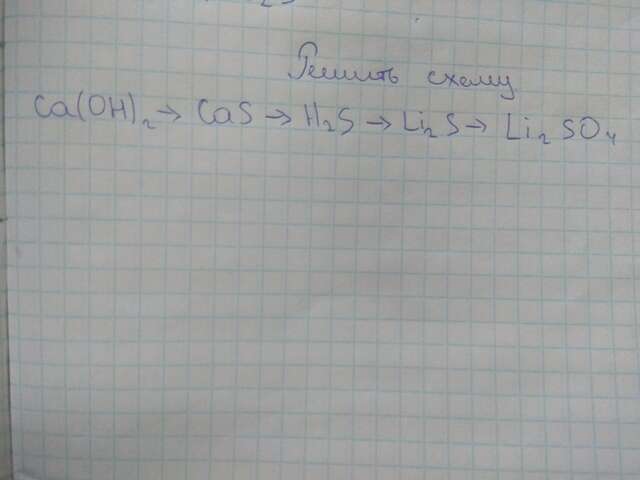 Решить схему
Ca(OH)₂ → CaS → H₂S → Li₂S → Li₂SO₄